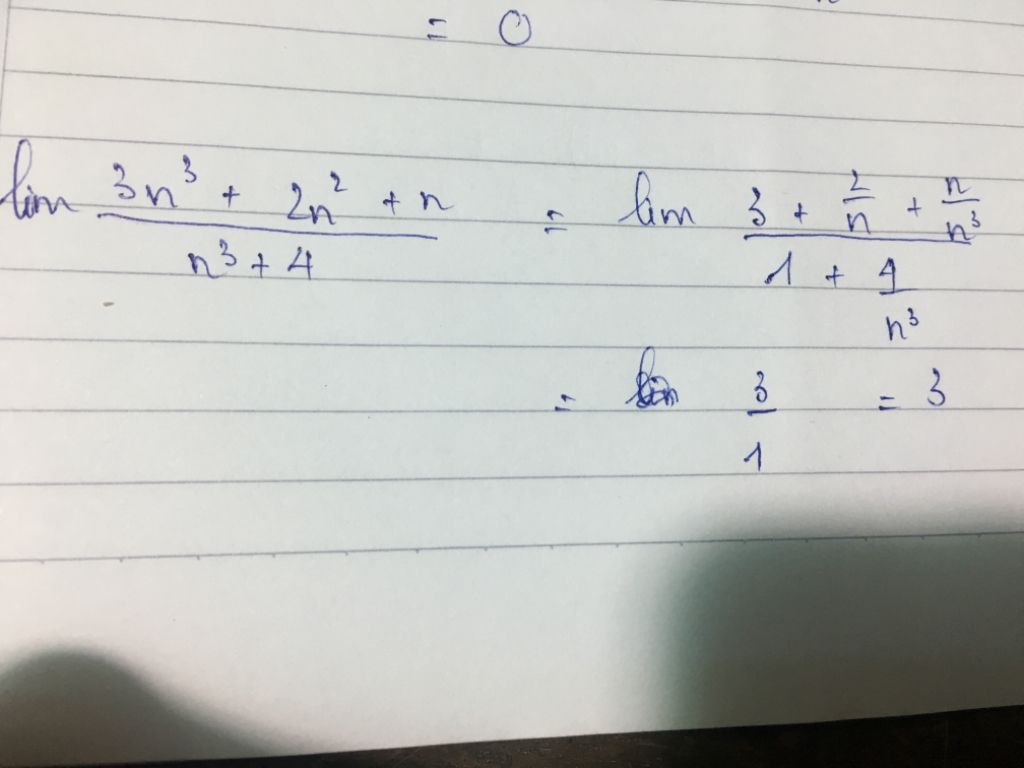 = 0
lim (3n³ + 2n² + n)/(n³ + 4) = lim (3 + 2/n + n/n³)/(1 + 4/n³)
= 3/1 = 3